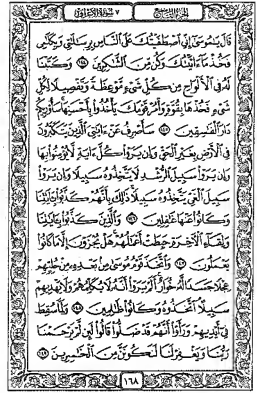 الجزء التاسع ٧ سورة الأعراف
قَالَ يَٰمُوسَىٰٓ إِنِّى ٱصْطَفَيْتُكَ عَلَى ٱلنَّاسِ بِرِسَٰلَٰتِى وَبِكَلَٰمِى
فَخُذْ مَآ ءَاتَيْتُكَ وَكُن مِّنَ ٱلشَّٰكِرِينَ ١٤٤ وَكَتَبْنَا
لَهُۥ فِى ٱلْأَلْوَاحِ مِن كُلِّ شَىْءٍ مَّوْعِظَةً وَتَفْصِيلًا لِّكُلِّ
شَىْءٍ فَخُذْهَا بِقُوَّةٍ وَأْمُرْ قَوْمَكَ يَأْخُذُوا۟ بِأَحْسَنِهَا سَأُو۟رِيكُمْ
دَارَ ٱلْفَٰسِقِينَ ١٤٥ سَأَصْرِفُ عَنْ ءَايَٰتِىَ ٱلَّذِينَ يَتَكَبَّرُونَ
فِى ٱلْأَرْضِ بِغَيْرِ ٱلْحَقِّ وَإِن يَرَوْا۟ كُلَّ ءَايَةٍ لَّا يُؤْمِنُوا۟ بِهَا
وَإِن يَرَوْا۟ سَبِيلَ ٱلرُّشْدِ لَا يَتَّخِذُوهُ سَبِيلًا وَإِن يَرَوْا۟
سَبِيلَ ٱلْغَىِّ يَتَّخِذُوهُ سَبِيلًا ذَٰلِكَ بِأَنَّهُمْ كَذَّبُوا۟ بِـَٔايَٰتِنَا
وَكَانُوا۟ عَنْهَا غَٰفِلِينَ ١٤٦ وَٱلَّذِينَ كَذَّبُوا۟ بِـَٔايَٰتِنَا
وَلِقَآءِ ٱلْءَاخِرَةِ حَبِطَتْ أَعْمَٰلُهُمْ هَلْ يُجْزَوْنَ إِلَّا مَا كَانُوا۟
يَعْمَلُونَ ١٤٧ وَٱتَّخَذَ قَوْمُ مُوسَىٰ مِنۢ بَعْدِهِۦ مِنْ حُلِيِّهِمْ
عِجْلًا جَسَدًا لَّهُۥ خُوَارٌ أَلَمْ يَرَوْا۟ أَنَّهُۥ لَا يُكَلِّمُهُمْ وَلَا يَهْدِيهِمْ
سَبِيلًا ٱتَّخَذُوهُ وَكَانُوا۟ ظَٰلِمِينَ ١٤٨ وَلَمَّا سُقِطَ
فِىٓ أَيْدِيهِمْ وَرَأَوْا۟ أَنَّهُمْ قَدْ ضَلُّوا۟ قَالُوا۟ لَئِن لَّمْ يَرْحَمْنَا
رَبُّنَا وَيَغْفِرْ لَنَا لَنَكُونَنَّ مِنَ ٱلْخَٰسِرِينَ ١٤٩
١٦٨